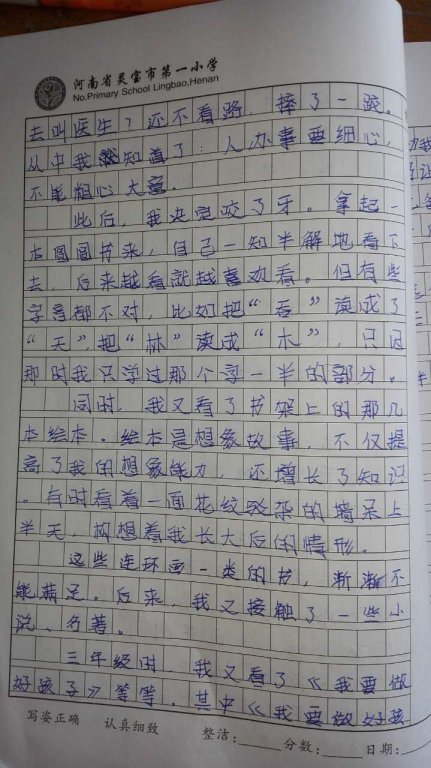 河南省灵宝市第一小学
No.Primary School Lingbao,Henan
去叫医生？还不看路，摔了一跤。
从中我就知道了：人办事要细心，
不能粗心大意。
此后，我决定咬了牙。拿起一
本图画书来，自己一知半解地看下
去，后来越看就越喜欢看。但有些
字音都不对，比如把“吞”读成了
“天”，把“林”读成“木”，只因
那时我只学过那个字一半的部分。
同时，我又看了书架上的那几
本绘本。绘本是想象故事，不仅提
高了我的想象能力，还增长了知识
。有时看着一面花纹斑杂的墙呆上
半天，构想着我长大后的情形。
这些连环画一类的书，渐渐不
能满足。后来，我又接触了一些小
说、名著。
三年级时，我又看了《我要做
好孩子》等等。其中《我要做好孩
写姿正确 认真细致 整洁:_____分数:_____日期: